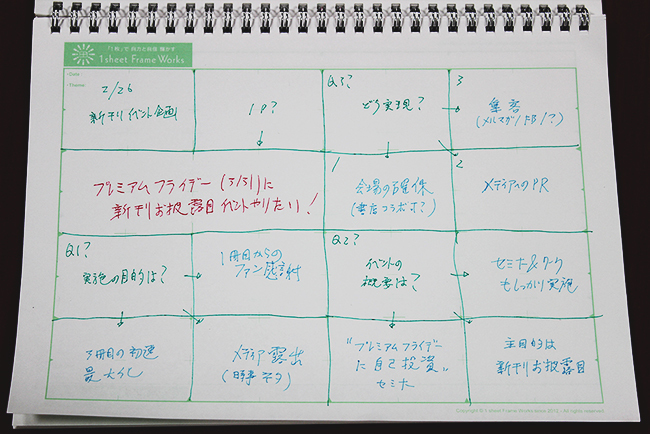 「1枚」で 両方と自由 働かす
1sheet Frame Works
Date:
Theme:
2/26
新刊イベント企画
1P?
Q3?
どう実現?
3
集客
(メルマガ/FB/?)
プレミアムフライデー(3/31)に
新刊お披露目イベントやりたい!
1
会場の確保
(書店コラボ?)
2
メディアのPR
Q1?
実施の目的は?
1冊目からの
ファン感謝
Q2?
イベントの
概要は?
セミナー&ワーク
もしっかり実施
3冊目の初速
最大化
メディア露出
(時事ネタ)
"プレミアムフライデー
に自己投資"
セミナー
主目的は
新刊お披露目